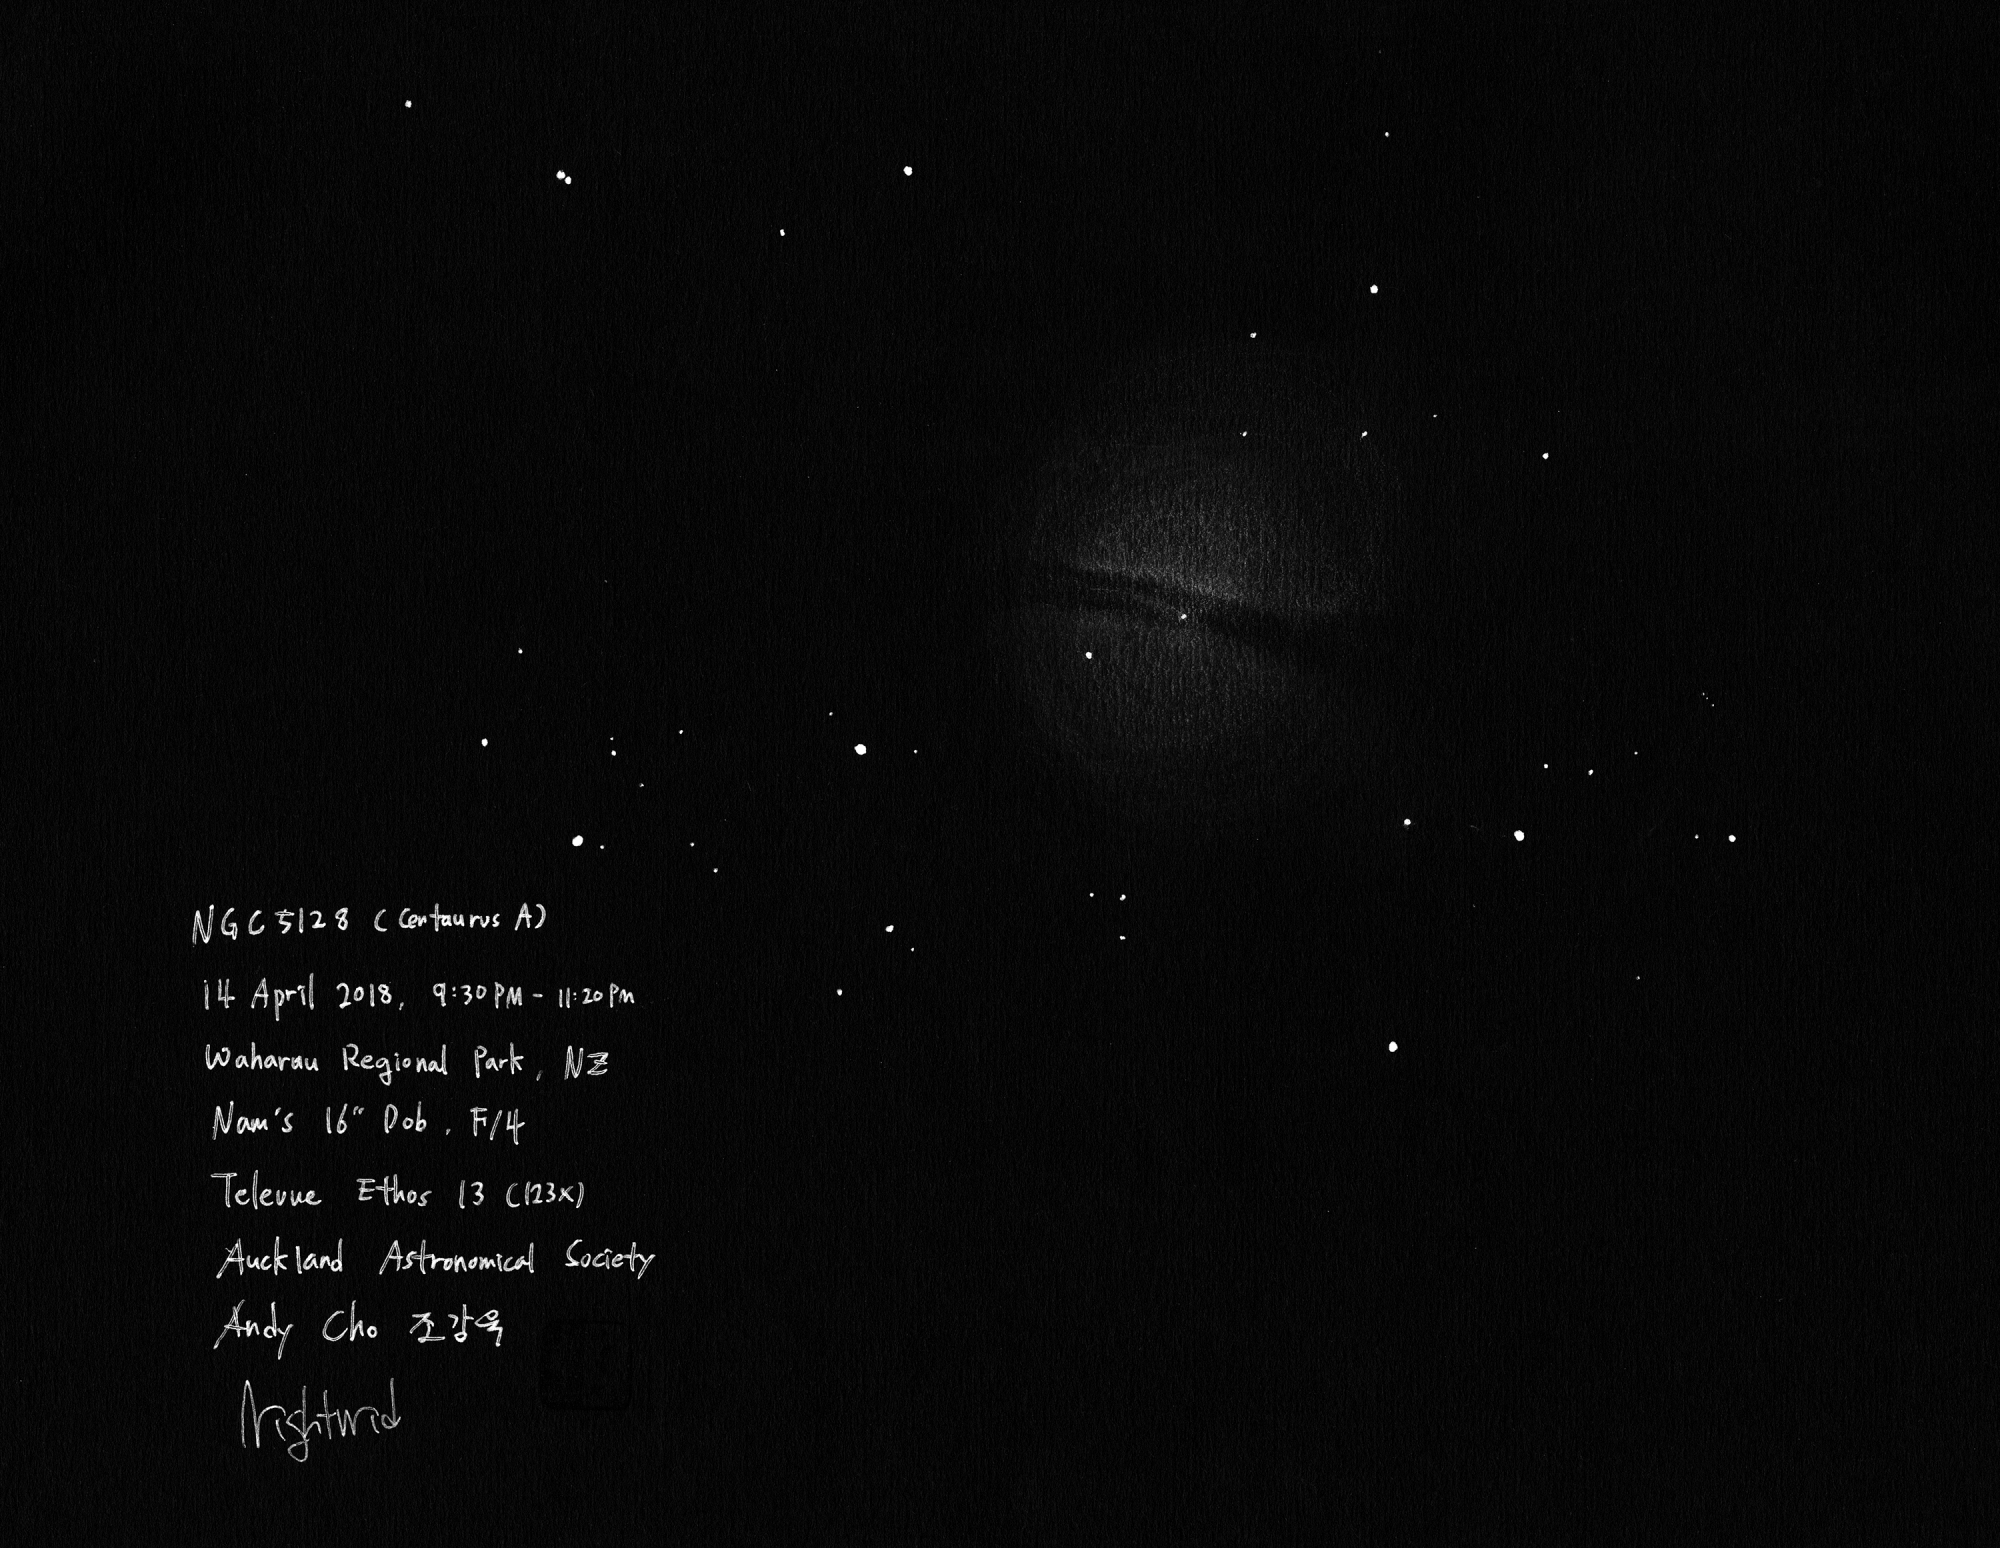 NGC 5128 (Centaurus A)
14 April 2018, 9:30PM - 11:20PM
Waharau Regional Park, NZ
Nam's 16" Dob, F/4
Televue Ethos 13 (123x)
Auckland Astronomical Society
Andy Cho 조강욱
Nightwid